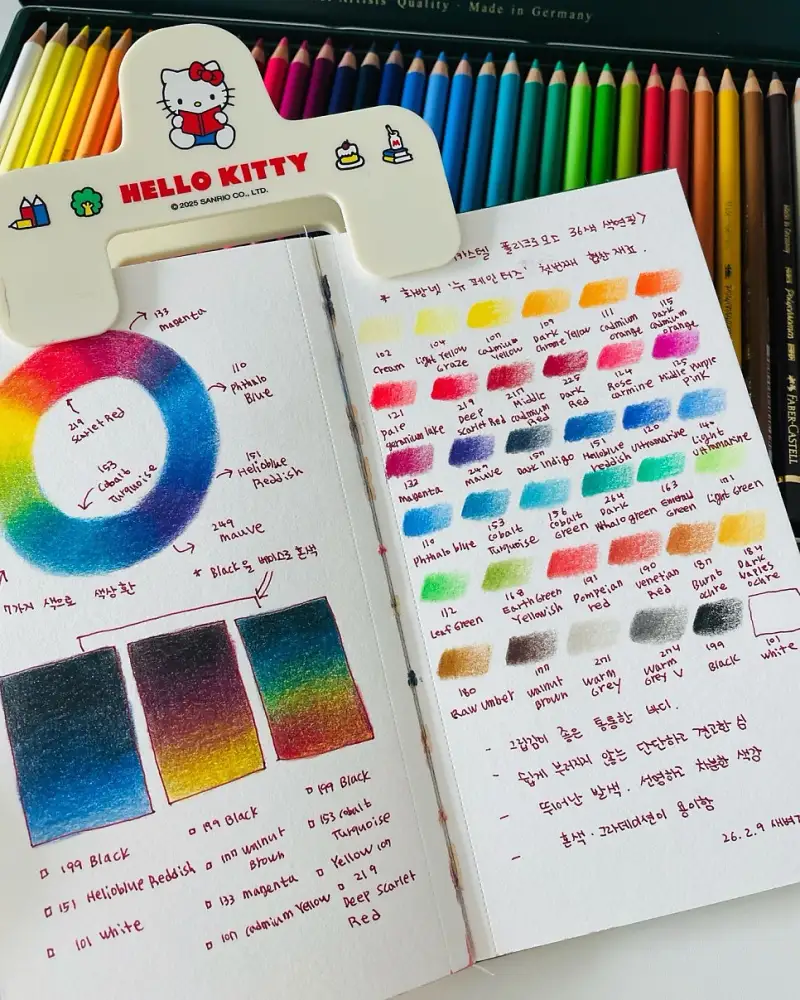 Artists Quality · Made in Germany
HELLO KITTY
© 2025 SANRIO CO., LTD.
FABER-CASTELL
Polychromos
133
magenta
110
Phthalo
Blue
219
Scarlet Red
153
Cobalt
Turquoise
151
Helioblue
Reddish
249
mauve
7가지 색으로 색상환
* Black을 베이스로 혼색
199 Black
151 Helioblue Reddish
101 White
199 Black
177 Walnut
Brown
133 magenta
107 Cadmium Yellow
199 Black
153 Cobalt
Turquoise
Yellow 107
219
Deep Scarlet
Red
카스텔 폴리크로모스 36색 색연필>
* 화방넷 '뉴 페인터즈' 첫번째 협찬 재료.
102
Cream
104
Light Yellow
Graze
107
Cadmium
Yellow
109
Dark
Chrome Yellow
111
Cadmium
orange
115
Dark
Cadmium
orange
121
Pale
geranium lake
219
Deep
Scarlet Red
217
Middle
cadmium
Red
225
Dark
Red
124
Rose
carmine
125
Middle Purple
Pink
133
magenta
249
mauve
157
Dark Indigo
151
Helioblue
reddish
120
Ultramarine
140
Light
Ultramarine
110
Phthalo blue
153
Cobalt
Turquoise
156
Cobalt
Green
264
Dark
Phthalo green
163
Emerald
Green
171
Light Green
112
Leaf Green
168
Earth Green
Yellowish
191
Pompeian
red
190
Venetian
Red
187
Burnt
ochre
184
Dark
Naples
ochre
180
Raw Umber
177
Walnut
Brown
271
Warm
Grey
274
Warm
Grey V
199
Black
101
White
- 그립감이 좋은 통통한 바디.
- 쉽게 부러지지 않는 단단하고 견고한 심
- 뛰어난 발색 · 선명하고 차분한 색감
- 혼색 · 그라데이션이 용이함
26.2.9 새벽